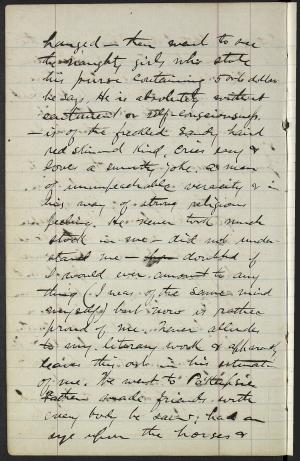 hanged — then went to see
the naughty girls who stole
his purse containing 5 or 6 dollars
he says. He is absolutely without
sentiment or self-consciousness
— is of the freckled sandy haird
red skinned kind, cries easy &
loves a smutty joke, a man
of unimpeachable veracity & in
his way of strong religious
feeling. He never took much
stock in me — did not under
stand me — doubted if
I would ever amount to any
thing (I was of the same mind
myself) but now is rather
proud of me. Never alludes
to my literary work & apparently
leaves this out in his estimate
of me. He went to Po'keepsie
made friends with
every body he saw; had an
eye upon the horses &